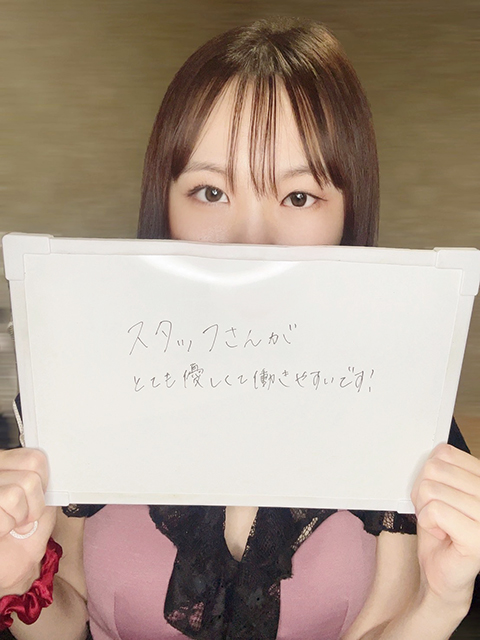 スタッフさんが
とても優しくて働きやすいです!